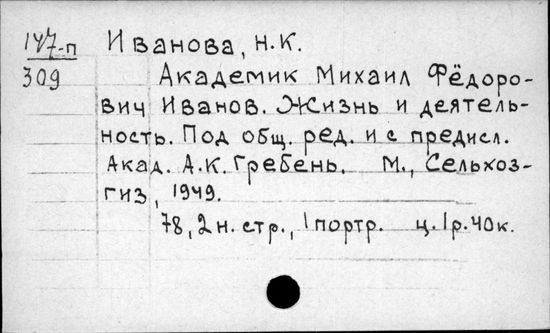 147-п Иванова, Н.К.
309 Академик Михаил Фёдоро-
вич Иванов. Жизнь и деятель-
ность. Под общ. ред. и с предисл.
Акад. А.К. Гребень. М., Сельхоз-
гиз, 1949.
78, 2 н. стр., 1 портр. ц. 1р. 40к.